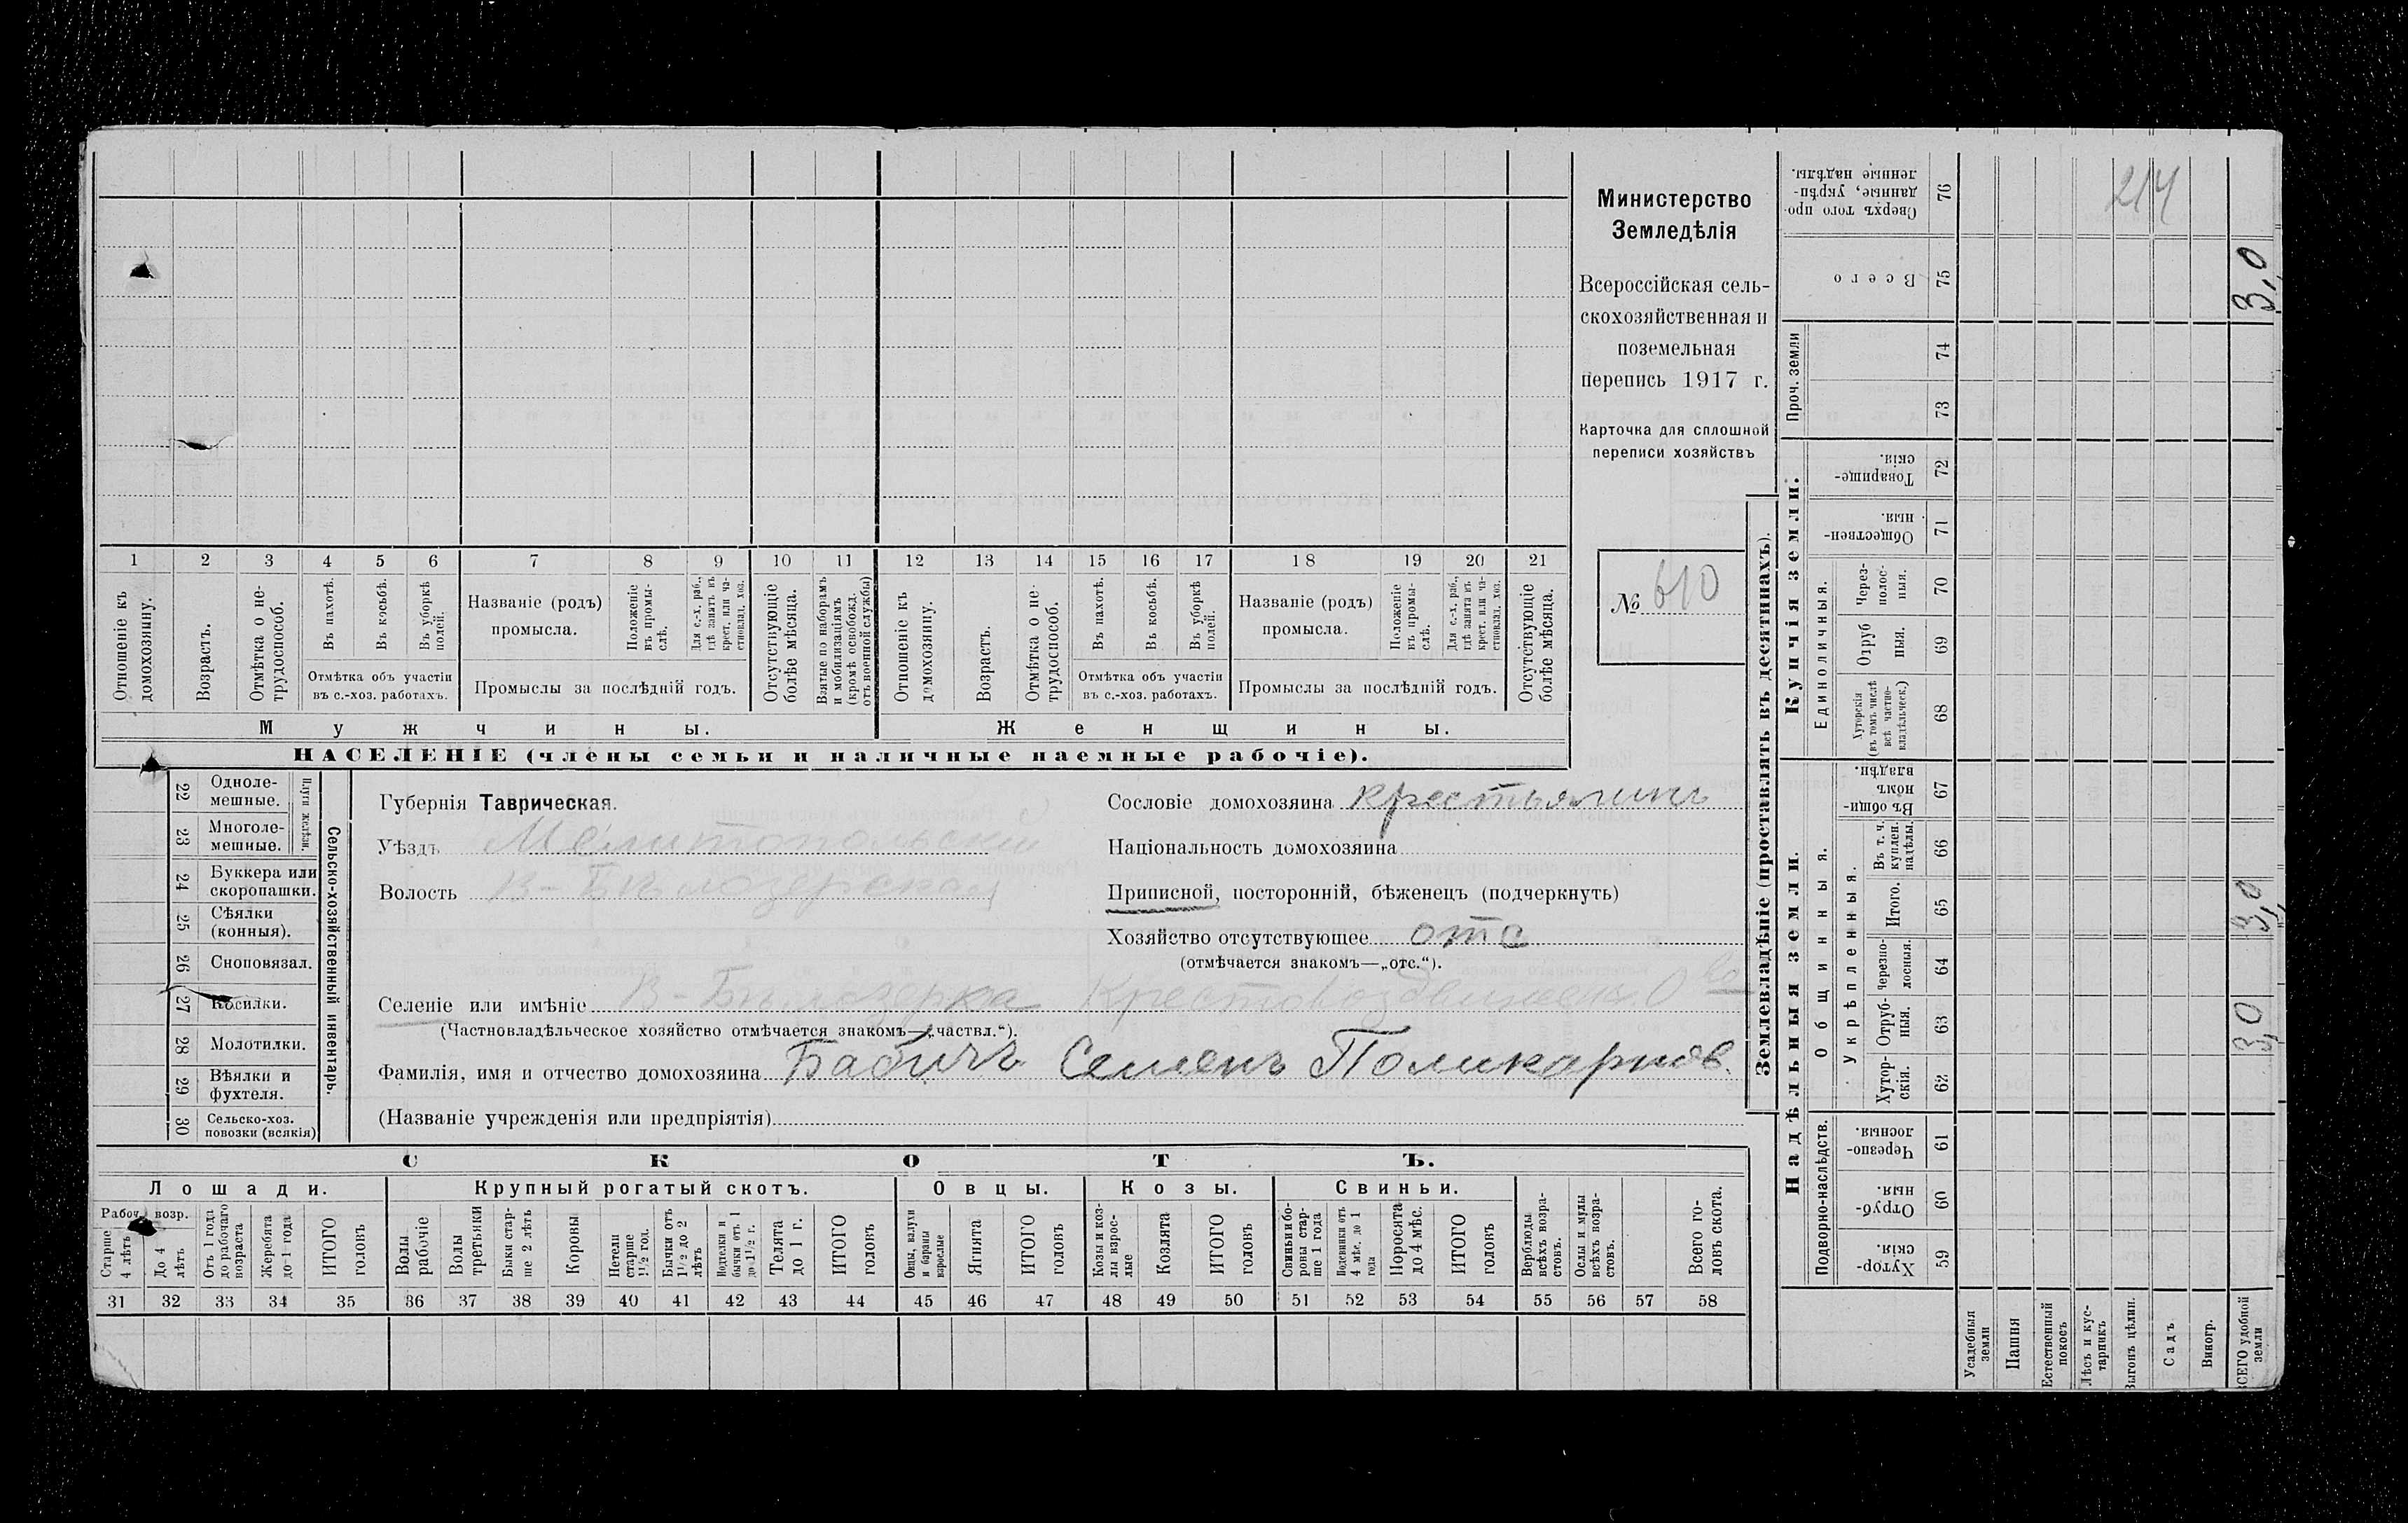 Министерство
Земледѣлія
Всероссійская сель-
скохозяйственная и
поземельная
перепись 1917 г.
Карточка для сплошной
переписи хозяйствъ
№ 610
1 2 3 4 5 6 7 8 9 10 11 12 13 14 15 16 17 18 19 20 21
Отношеніе къ домохозяину.
Возрастъ.
Отмѣтка о не-трудоспособ.
Въ пахотѣ.
Въ косьбѣ.
Въ уборкѣ полей.
Отмѣтка объ участіи
въ с.-хоз. работахъ.
Названіе (родъ)
промысла.
Положеніе въ промы-слѣ.
Для с.-х. раб., гдѣ занятъ въ крест. или ча-стновлад. хоз.
Промыслы за послѣдній годъ.
Отсутствующіе болѣе мѣсяца.
Взятые по наборамъ и мобилизаціямъ (кромѣ освобожд. отъ военной службы)
Отношеніе къ домохозяину.
Возрастъ.
Отмѣтка о не-трудоспособ.
Въ пахотѣ.
Въ косьбѣ.
Въ уборкѣ полей.
Отмѣтка объ участіи
въ с.-хоз. работахъ.
Названіе (родъ)
промысла.
Положеніе въ промы-слѣ.
Для с.-х. раб., гдѣ занята въ крест. или ча-стновлад. хоз.
Промыслы за послѣдній годъ.
Отсутствующіе болѣе мѣсяца.
Мужчины. Женщины.
НАСЕЛЕНІЕ (члены семьи и наличные наемные рабочіе).
22 Одноле-мешные.
23 Многоле-мешные.
Плуги желѣзн.
24 Буккера или скоропашки.
25 Сѣялки (конныя).
26 Сноповязал.
27 Косилки.
28 Молотилки.
29 Вѣялки и фухтеля.
30 Сельско-хоз. повозки (всякія)
Сельско-хозяйственный инвентарь.
Губернія Таврическая.
Уѣздъ Мелитопольскій
Волость В-Бѣлозерская
Селеніе или имѣніе В-Бѣлозерка
(Частновладѣльческое хозяйство отмѣчается знакомъ—„частвл.“).
Фамилія, имя и отчество домохозяина Бабичъ Семенъ Поликарпов.
(Названіе учрежденія или предпріятія)
Сословіе домохозяина крестьянинъ
Національность домохозяина
Приписной, посторонній, бѣженецъ (подчеркнуть)
Хозяйство отсутствующее отс
(отмѣчается знакомъ—„отс.“).
СКОТЪ.
Лошади. Крупный рогатый скотъ. Овцы. Козы. Свиньи.
Рабоч. возр.
Старше 4 лѣтъ
До 4 лѣтъ
Отъ 1 года до рабочаго возраста
Жеребята до 1 года
ИТОГО головъ
Волы рабочіе
Волы третьяки
Быки стар-ше 2 лѣтъ
Коровы
Нетели старше 1½ год.
Бычки отъ 1½ до 2 лѣтъ
Подтелки и бычки отъ 1 до 1½ г.
Телята до 1 г.
ИТОГО головъ
Овцы, валухи и бараны взрослые
Ягнята
ИТОГО головъ
Козы и коз-лы взрос-лые
Козлята
ИТОГО головъ
Свиньи и бо-ровы стар-ше 1 года
Подсвинки отъ 4 мѣс. до 1 года
Поросята до 4 мѣс.
ИТОГО головъ
Верблюды всѣхъ возра-стовъ.
Ослы и мулы всѣхъ возра-стовъ.
Всего го-ловъ скота.
31 32 33 34 35 36 37 38 39 40 41 42 43 44 45 46 47 48 49 50 51 52 53 54 55 56 57 58
Землевладѣніе (проставлять въ десятинахъ).
Надѣльныя земли.
Купчія земли.
Проч. земли
Подворно-наслѣдств.
Общинныя.
Укрѣпленныя.
Единоличныя.
Хутор-скія. 59
Отруб-ныя. 60
Черезпо-лосныя. 61
Хутор-скія. 62
Отруб-ныя. 63
Черезпо-лосныя. 64
Итого. 65
Въ т. ч. куплен. надѣлы. 66
Въ общин-номъ владѣн. 67
Хуторскія (въ томъ числѣ всѣ частно-владѣльческ.) 68
Отруб ныя. 69
Через-полос-ныя. 70
Обществен-ныя. 71
Товарище-скія. 72
73
74
Всего 75
Сверхъ того про-данные, укрѣп-ленные надѣлы. 76
Усадебныя земли
Пашня
Естественный покосъ
Лѣсъ и кус-тарникъ
Выгонъ цѣлин.
Садъ
Виногр.
ВСЕГО удобной земли
3,0
3,0
3,0
214